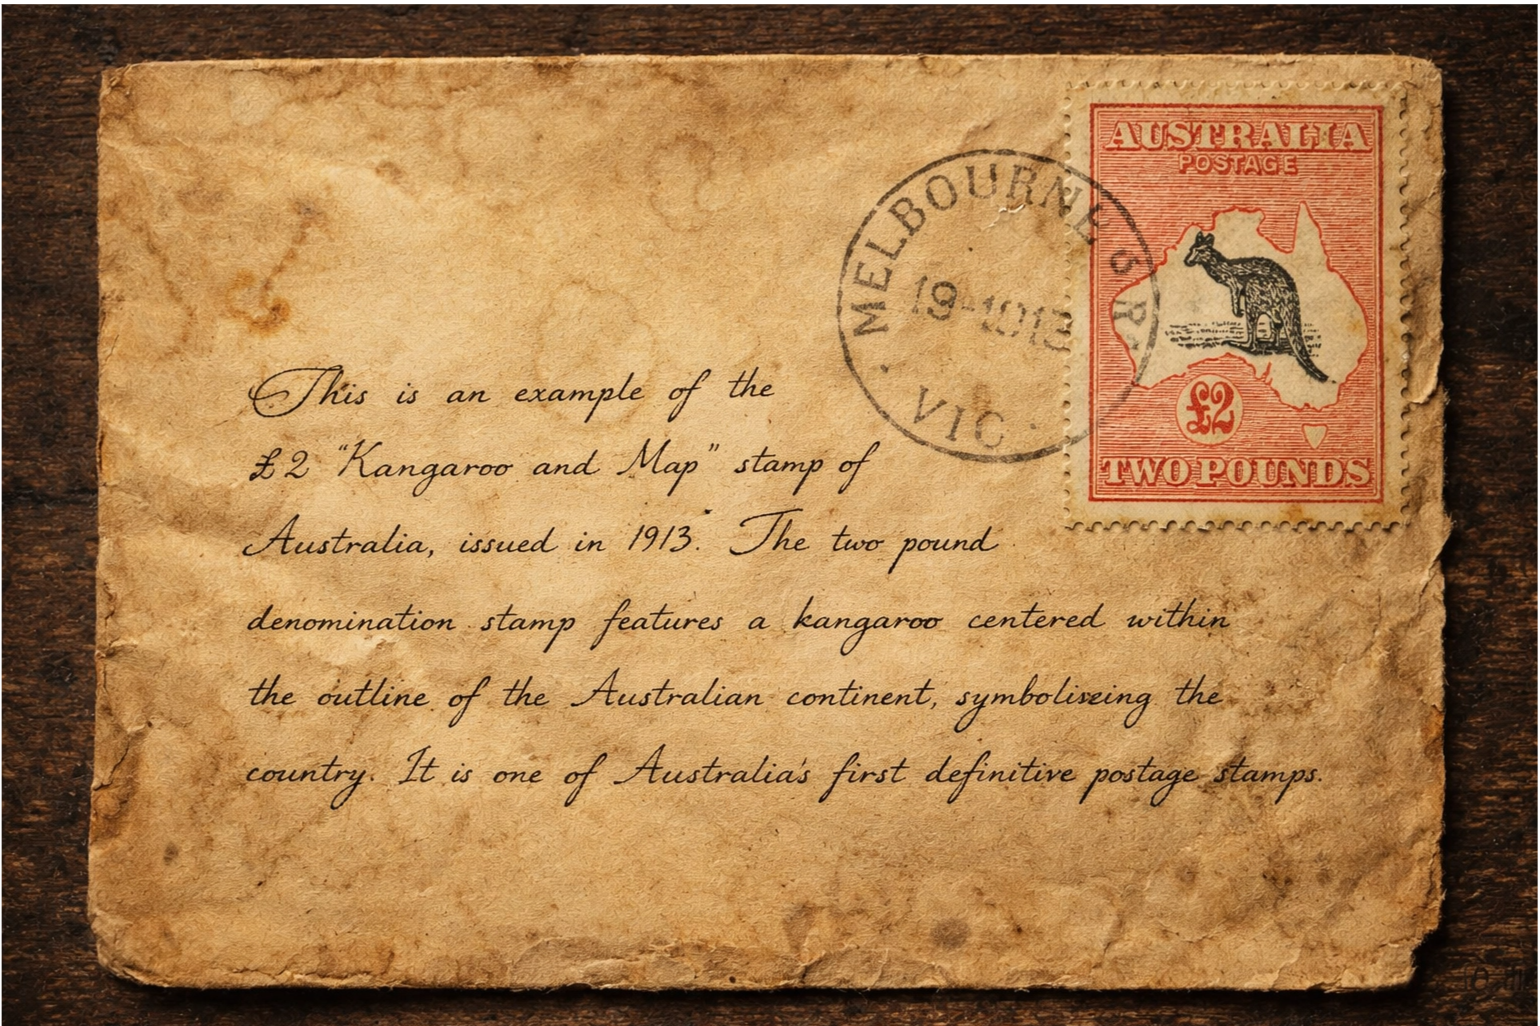 AUSTRALIA
POSTAGE
MELBOURNE
VIC
£2
TWO POUNDS
This is an example of the
£2 "Kangaroo and Map" stamp of
Australia, issued in 1913. The two pound
denomination stamp features a kangaroo centered within
the outline of the Australian continent, symboliszing the
country. It is one of Australia's first definitive postage stamps.